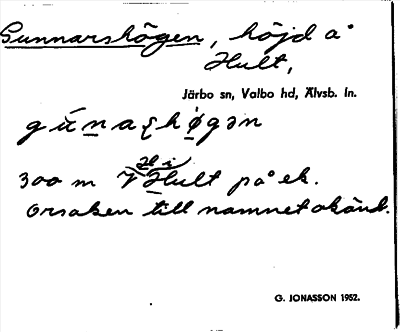 Gunnarshögen, höjd å
Hult,
Järbo sn, Valbo hd, Älvsb. ln.
300 m V Hult på ek.
Orsaken till namnet okänd.
G. JONASSON 1952.